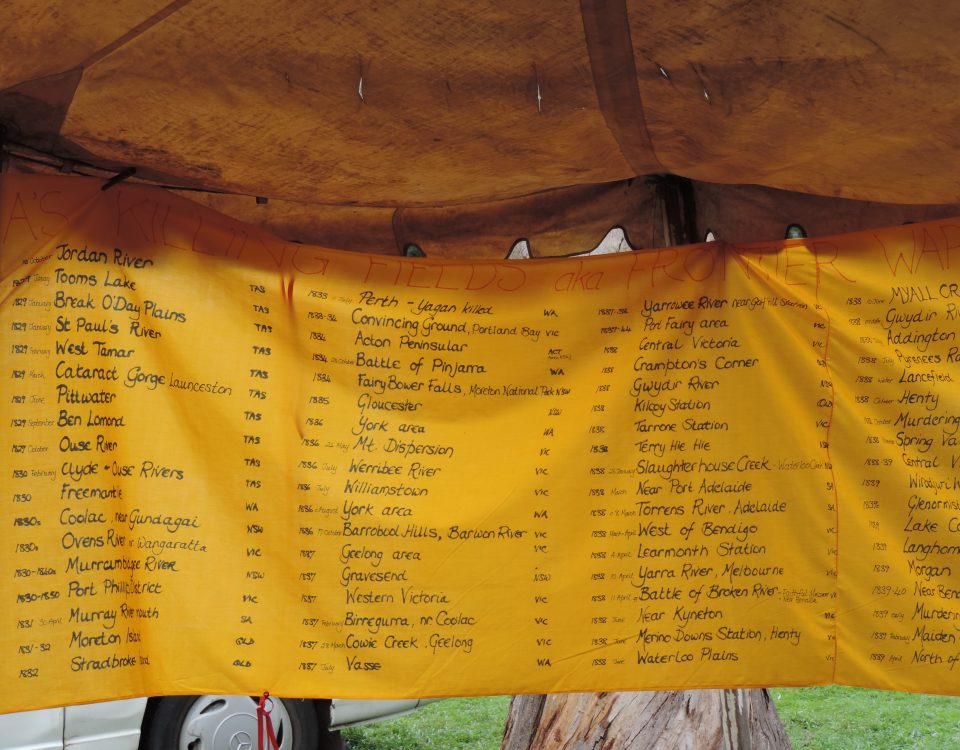 A'S KILLING FIELDS aka FRONTIER WAR
October Jordan River
Tooms Lake TAS
1829 January Break O'Day Plains TAS
1829 January St Paul's River TAS
1829 February West Tamar TAS
1829 March Cataract Gorge Launceston TAS
1829 June Pittwater TAS
1829 September Ben Lomond TAS
1827 October Ouse River TAS
1830 February Clyde + Ouse Rivers TAS
1830 Freemantle WA
1830s Coolac, near Gundagai NSW
1830s Ovens River nr Wangaratta VIC
1830-1840s Murrumbidgee River NSW
1830-1850 Port Phillip District VIC
1831 30 April Murray River mouth SA
1831-32 Moreton QLD
1832 Stradbroke QLD
1833 Perth - Yagan killed WA
1833-34 Convincing Ground, Portland Bay VIC
1834 Acton Peninsular ACT
1834 October Battle of Pinjarra WA
1834 Fairy Bower Falls, Moreton National Park NSW
1835 Gloucester NSW
1836 York area WA
1836 May Mt. Dispersion VIC
1836 July Werribee River VIC
1836 July Williamstown VIC
1836 August York area WA
1836 October Barrabool Hills, Barwon River VIC
1837 Geelong area VIC
1837 Gravesend NSW
1837 Western Victoria VIC
1837 February Birregurra, nr Coolac VIC
1837 March Cowie Creek, Geelong VIC
1837 July Vasse WA
1837-38 Yarrowee River
1837-44 Port Fairy area VIC
1838 Central Victoria VIC
1838 Crampton's Corner
1838 Gwydir River
1838 Kilcoy Station QLD
1838 Tarrone Station VIC
1838 Terry Hie Hie
1838 January Slaughterhouse Creek - Waterloo Creek
1838 March Near Port Adelaide
1838 March Torrens River, Adelaide
1838 March-April West of Bendigo
1838 April Learmonth Station
1838 April Yarra River, Melbourne
1838 11 April Battle of Broken River - Faithfull Massacre
1838 June Near Kyneton
1838 June Merino Downs Station, Henty
1838 June Waterloo Plains
1838 June MYALL CR
1838 Gwydir Ri
Addington
1838 July Pyrenees Ra
1838 Lancefield
1838 October Henty
October Murdering
1838 Spring Va
1838-39 Central Vi
1839
1839 Glenormis
1839 Lake Co
1839 Langhorn
1839 Morgan
1839-40 Near Bend
1839 early Murderin
1839 February Maiden
1839 April North of